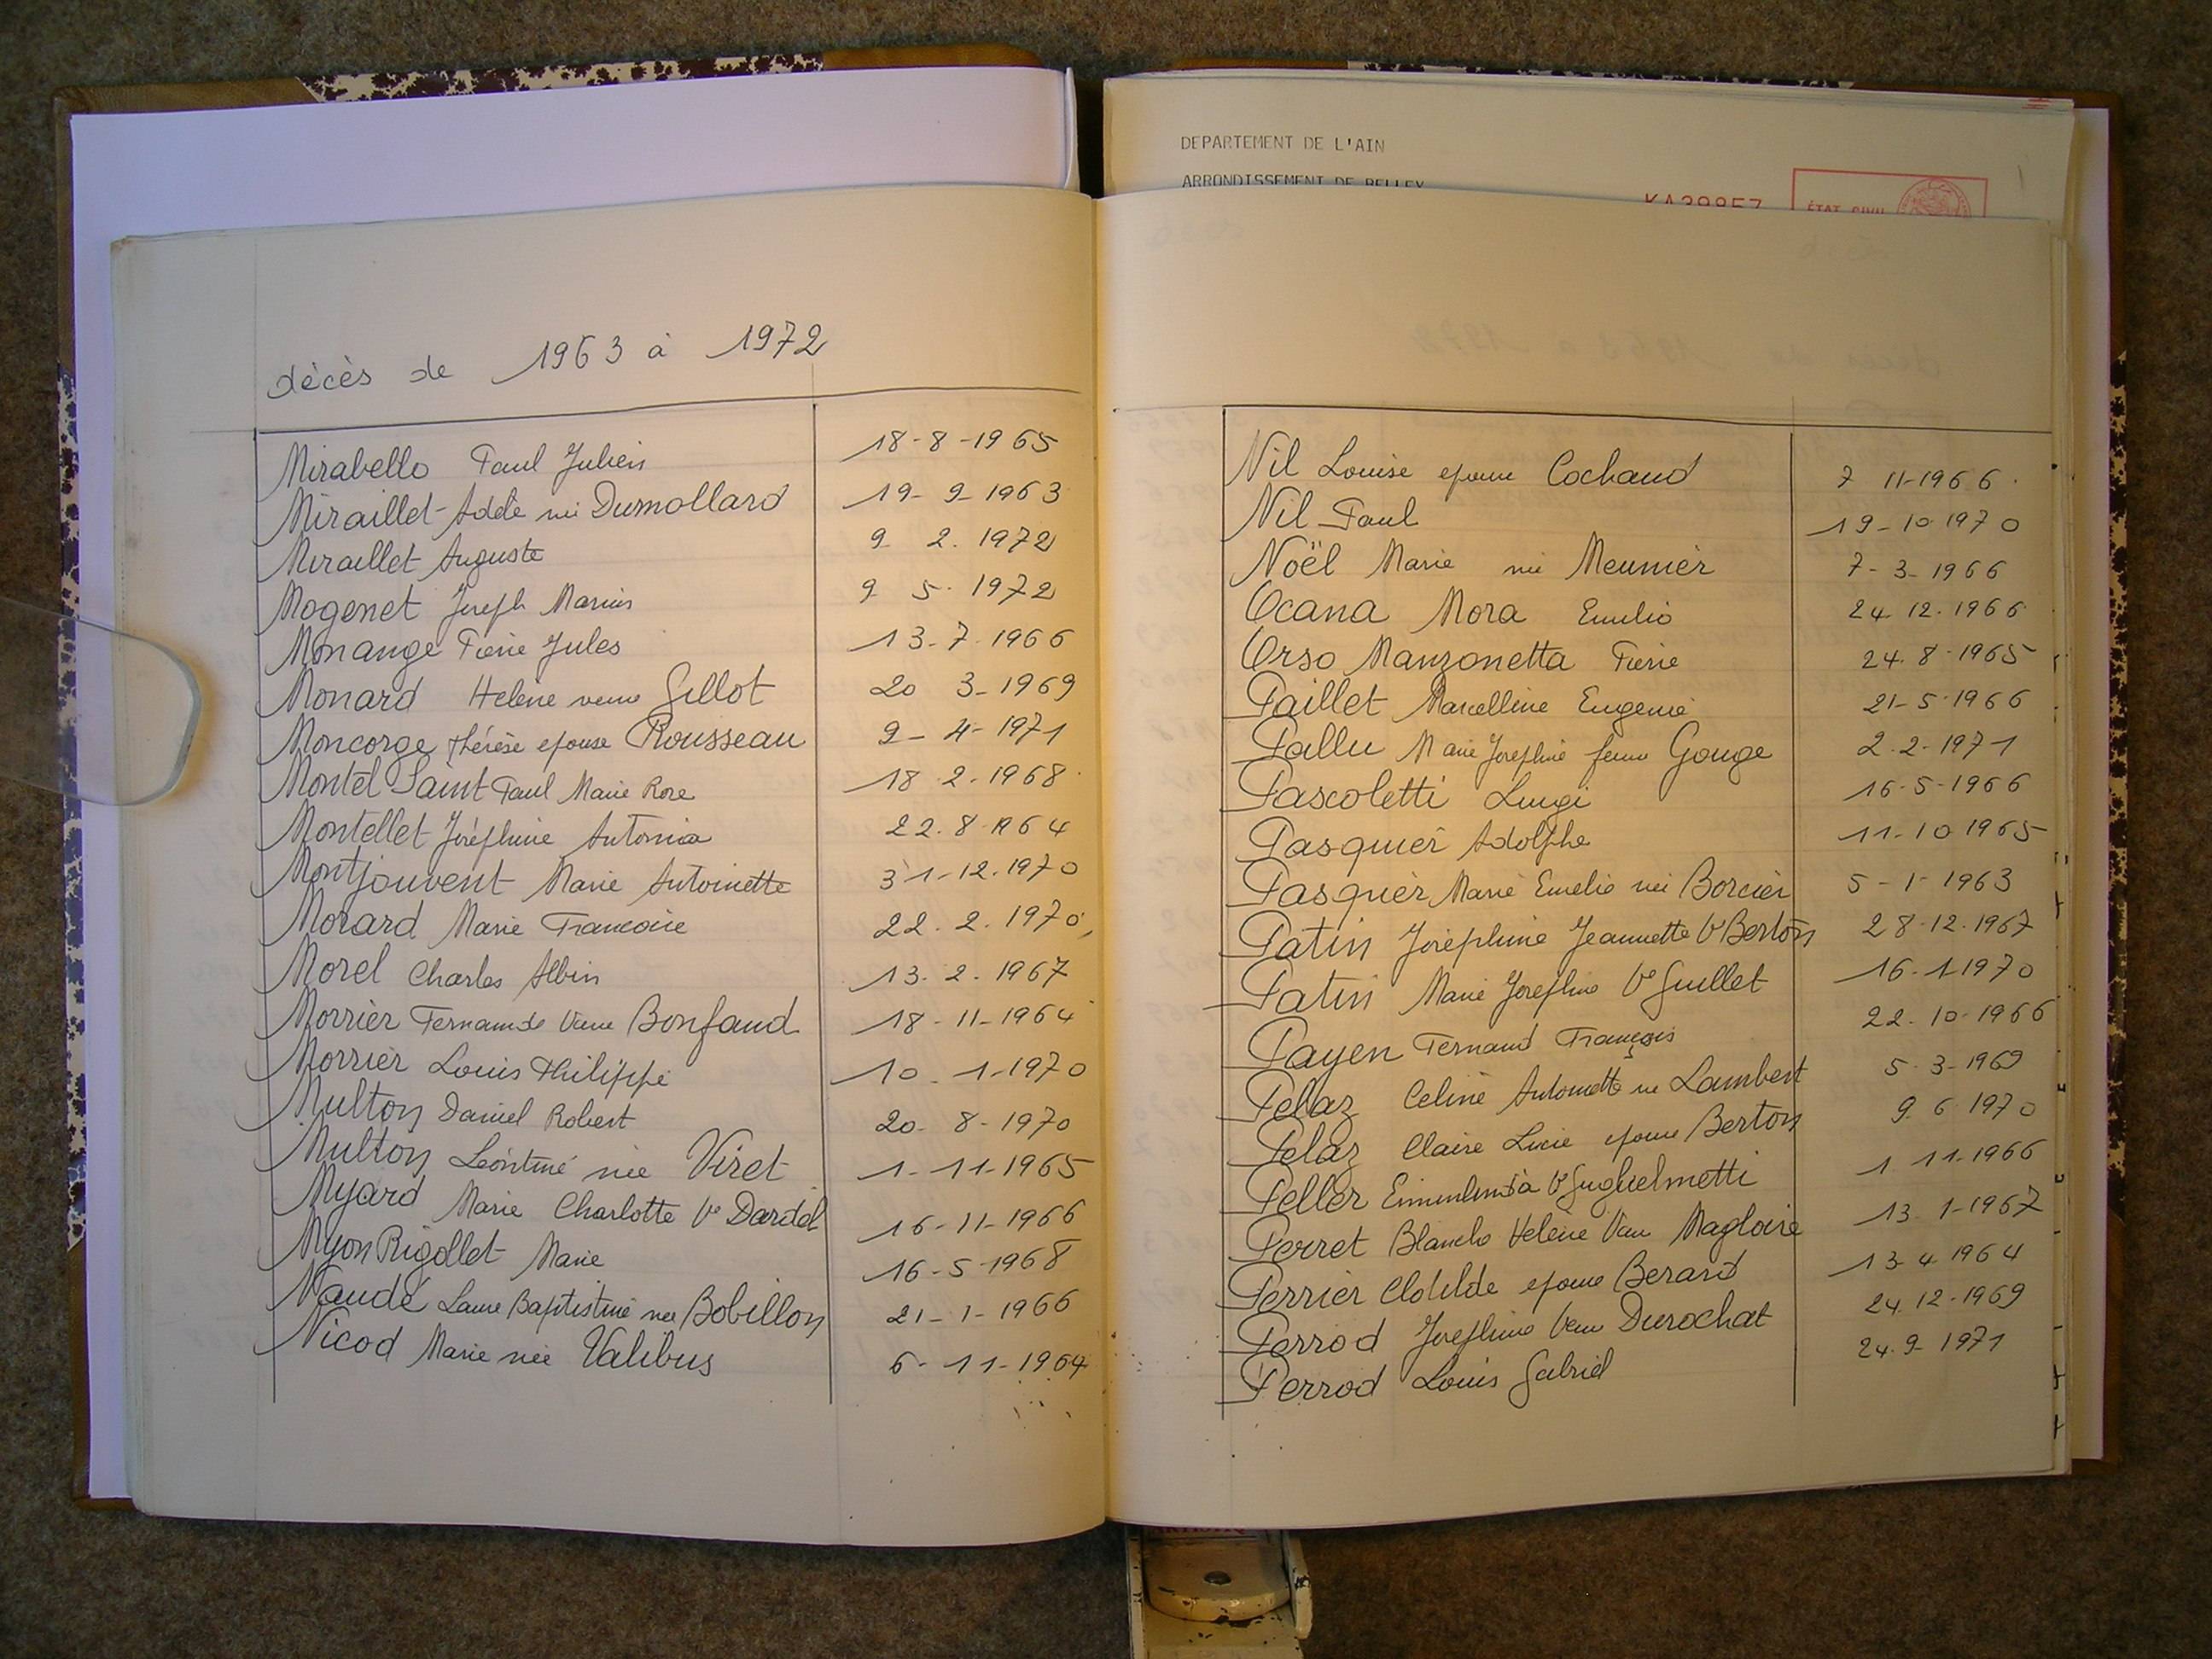 décès de 1963 à 1972
Mirabello Paul Julien 18-8-1965
Miraillet Adèle née Dumollard 19-9-1963
Miraillet Auguste 9 2. 1972
Mogenet Joseph Marius 9 5. 1972
Monange Pierre Jules 13-7-1966
Monard Helene veuve Gillot 20 3-1969
Moncorge Thérèse epouse Rousseau 9-4-1971
Montel Saint Paul Marie Rose 18.2.1968
Montellet Joséphine Antonia 22.8.1964
Montjouvent Marie Antoinette 31-12.1970
Morard Marie Francoise 22.2.1970
Morel Charles Albin 13.2.1967
Morrier Fernande Veuve Bonfand 18-11-1964
Morrier Louis Philippe 10-1-1970
Multon Daniel Robert 20-8-1970
Multon Léontine née Viret 1-11-1965
Myard Marie Charlotte Ve Dardel 16-11-1966
Myon Rigollet Marie 16-5-1968
Naudé Laure Baptistine née Bobillon 21-1-1966
Nicod Marie née Valibus 6-11-1964
DEPARTEMENT DE L'AIN
ARRONDISSEMENT DE BELLEY
KA39857
ÉTAT CIVIL
Nil Louise epouse Cochaud 7 11-1966
Nil Paul 19-10-1970
Noël Marie née Meunier 7-3-1966
Ocana Mora Emilio 24.12.1966
Orso Manzonetta Pierre 24.8.1965
Paillet Marcelline Eugenie 21-5-1966
Pallu Marie Josephine femme Gouge 2.2-1971
Pascoletti Luigi 16-5-1966
Pasquier Adolphe 11-10 1965
Pasquier Marie Emelie née Borcier 5-1-1963
Patin Joséphine Jeannette Ve Berton 28-12.1967
Patin Marie Josephine Ve Guillet 16-1-1970
Payen Fernand François 22-10-1966
Pelaz Celine Antoinette née Lambert 5-3-1969
Pelaz Claire Lucie epouse Berton 9.6 1970
Peller Ve Guglielmetti 1 11-1966
Perret Blanche Helene Veuve Magloire 13 1-1967
Perrier Clotilde epouse Berard 13-4 1964
Perrod Josephine Veuve Durochat 24.12-1969
Perrod Louis Gabriel 24.9-1971